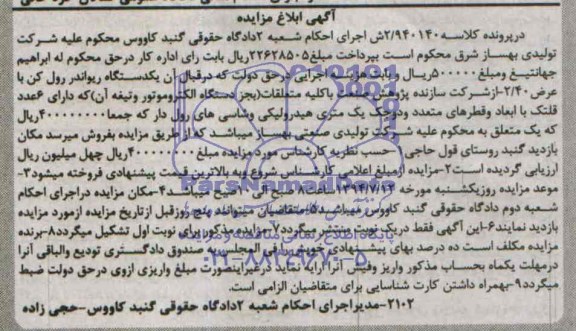 آگهی ابلاغ مزایده
درپرونده کلاسه ۲/۹۴۰۱۴۰ش اجرای احکام شعبه ۲دادگاه حقوقی گنبد کاووس محکوم علیه شرکت
تولیدی بهساز شرق محکوم است بپرداخت مبلغ۲۲۶۲۸۵۰۵ریال بابت رای اداره کار درحق محکوم له ابراهیم
جهانتیغ ومبلغ۵۰۰۰۰۰ریال و بابت هزینه اجرایی درحق دولت که درقبال آن یکدستگاه ریواندر رول کن با
عرض۲/۴۰-ازشرکت سازنده پژوهش صنعت باکلیه متعلقات(بجز دستگاه الکتروموتور وتیغه آن)که دارای ۶عدد
قلتک با ابعاد وقطرهای متعدد ودوجک یک متری هیدرولیکی وشاسی های رول دار که جمعا۴۰۰۰۰۰۰۰ریال
که یک متعلق به محکوم علیه شرکت تولیدی صنعتی بهساز میباشد که از طریق مزایده بفروش میرسد مکان
بازدید گنبد روستای قول حاجی ۱-حسب نظریه کارشناس مورد مزایده مبلغ ۴۰۰۰۰۰۰۰ریال چهل میلیون ریال
ارزیابی گردیده است۲-مزایده ازمبلغ اعلامی کارشناس شروع وبه بالاترین قیمت پیشنهادی فروخته میشود۳-
موعد مزایده روزیکشنبه مورخه صبح الی صبح میباشد۴-مکان مزایده دراجرای احکام
شعبه دوم دادگاه حقوقی گنبد کاووس میباشد۵-متقاضیان میتوانند پنج روزقبل ازتاریخ مزایده ازمورد مزایده
بازدید نمایند۶-این آگهی فقط دریک نوبت منتشر میگردد۷-مزایده مذکور برای نوبت اول تشکیل میگردد۸-برنده
مزایده مکلف است ده درصد بهای پیشنهادی خویش را فی المجلس به صندوق دادگستری تودیع والباقی آنرا
درمهلت یکماه بحساب مذکور واریز وفیش آنرا ارایه نماید درغیراینصورت مبلغ واریزی ازوی درحق دولت ضبط
میگردد۹-بهمراه داشتن کارت شناسایی برای متقاضیان الزامی است.
۲۱۰۲-مدیراجرای احکام شعبه ۲دادگاه حقوقی گنبد کاووس-حجی زاده
ParsNamadData
۰۲۱-۸۸۳۴۹۶۷۰-۵